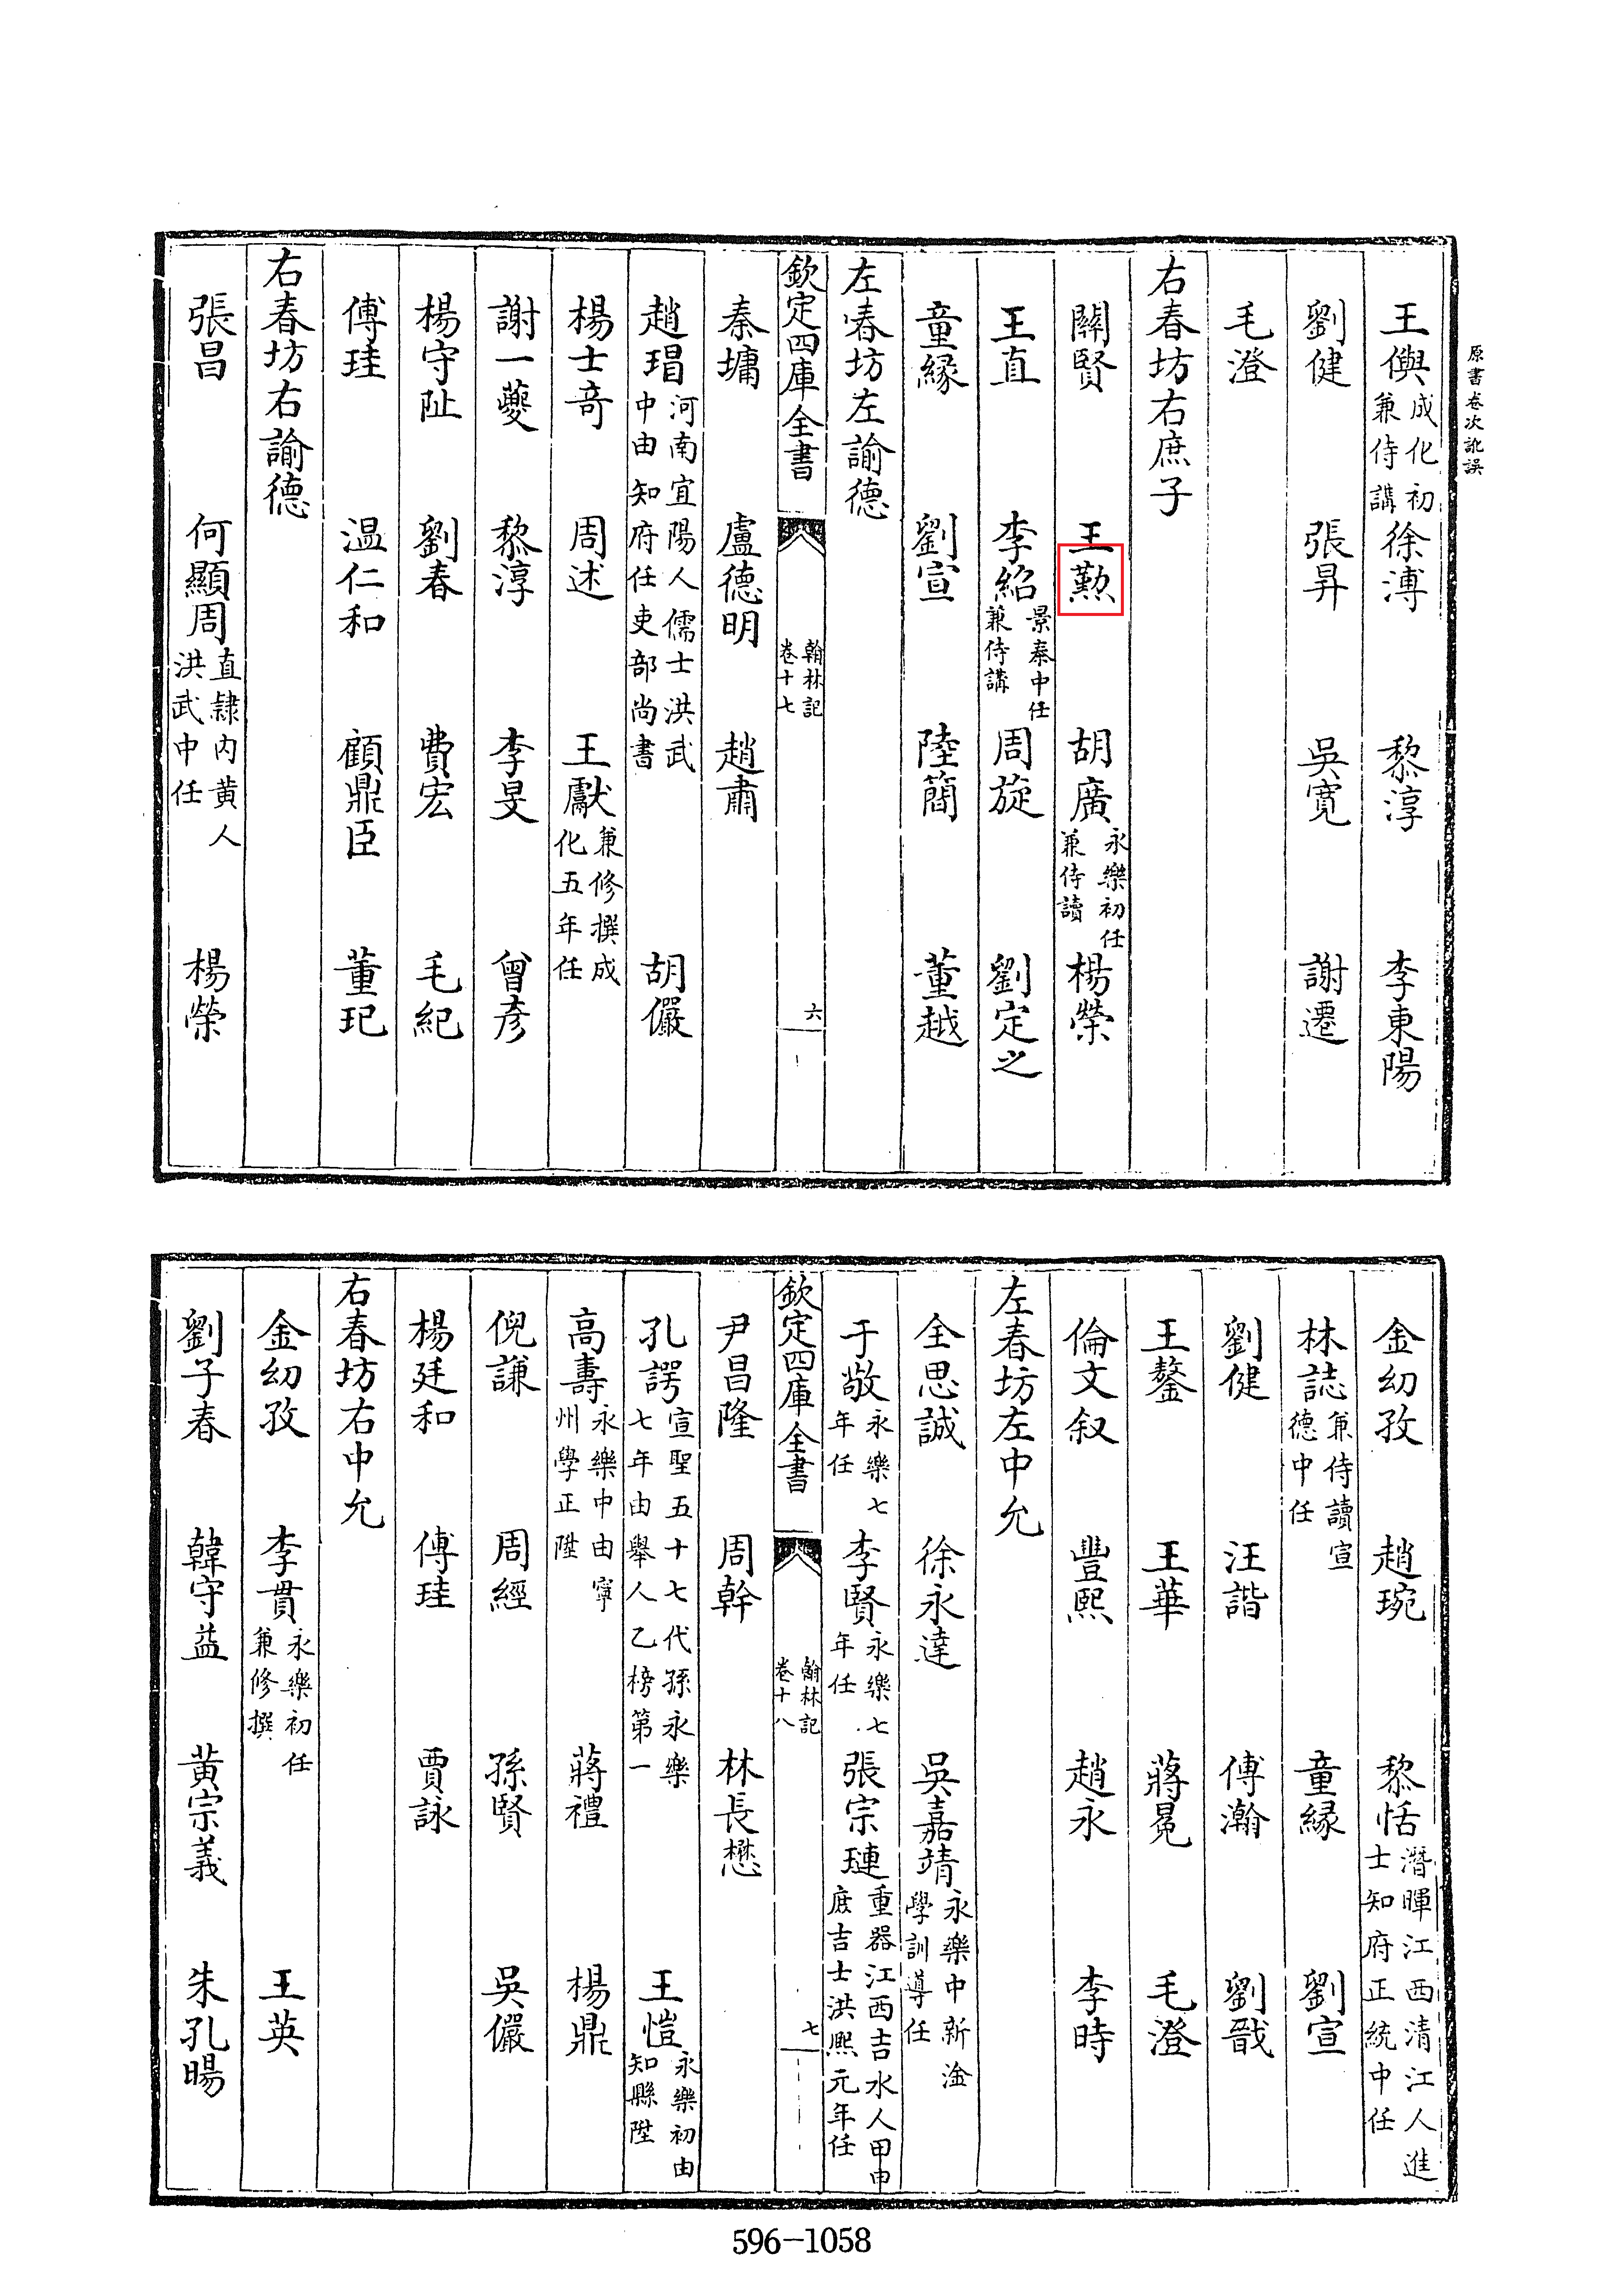 原書卷次訛誤
王㒜成化初兼侍講徐溥黎淳李東陽
劉健張昇吳寛謝遷
毛澄
右春坊右庶子
關賢王懃胡廣永樂初任兼侍讀楊榮
王直李紹景泰中任兼侍講周旋劉定之
童緣劉宣陸簡董越
左春坊左諭德
欽定四庫全書
翰林記
卷十七
六
秦墉盧德明趙肅
趙瑁河南宜陽人儒士洪武中由知府任吏部尚書胡儼
楊士竒周述王獻兼修撰成化五年任
謝一夔黎淳李旻曾彥
楊守阯劉春費宏毛紀
傅珪温仁和顧鼎臣董玘
右春坊右諭德
張昌何顯周直隸内黄人洪武中任楊榮
金幼孜趙琬黎恬潛暉江西清江人進士知府正統中任
林誌兼侍讀宣德中任童緣劉宣
劉健汪諧傅瀚劉戩
王鏊王華蔣冕毛澄
倫文叙豐熙趙永李時
左春坊左中允
全思誠徐永達吳嘉靖永樂中新淦學訓導任
于敬永樂七年任李賢永樂七年任張宗璉重器江西吉水人甲申庶吉士洪熙元年任
欽定四庫全書
翰林記
卷十八
七
尹昌隆周幹林長懋
孔諤宣聖五十七代孫永樂七年由舉人乙榜第一王愷永樂初由知縣陞
高壽永樂中由寧州學正陞蔣禮楊鼎
倪謙周經孫賢吳儼
楊廷和傅珪賈詠
右春坊右中允
金幼孜李貫永樂初任兼修撰王英
劉子春韓守益黄宗義朱孔暘
596-1058